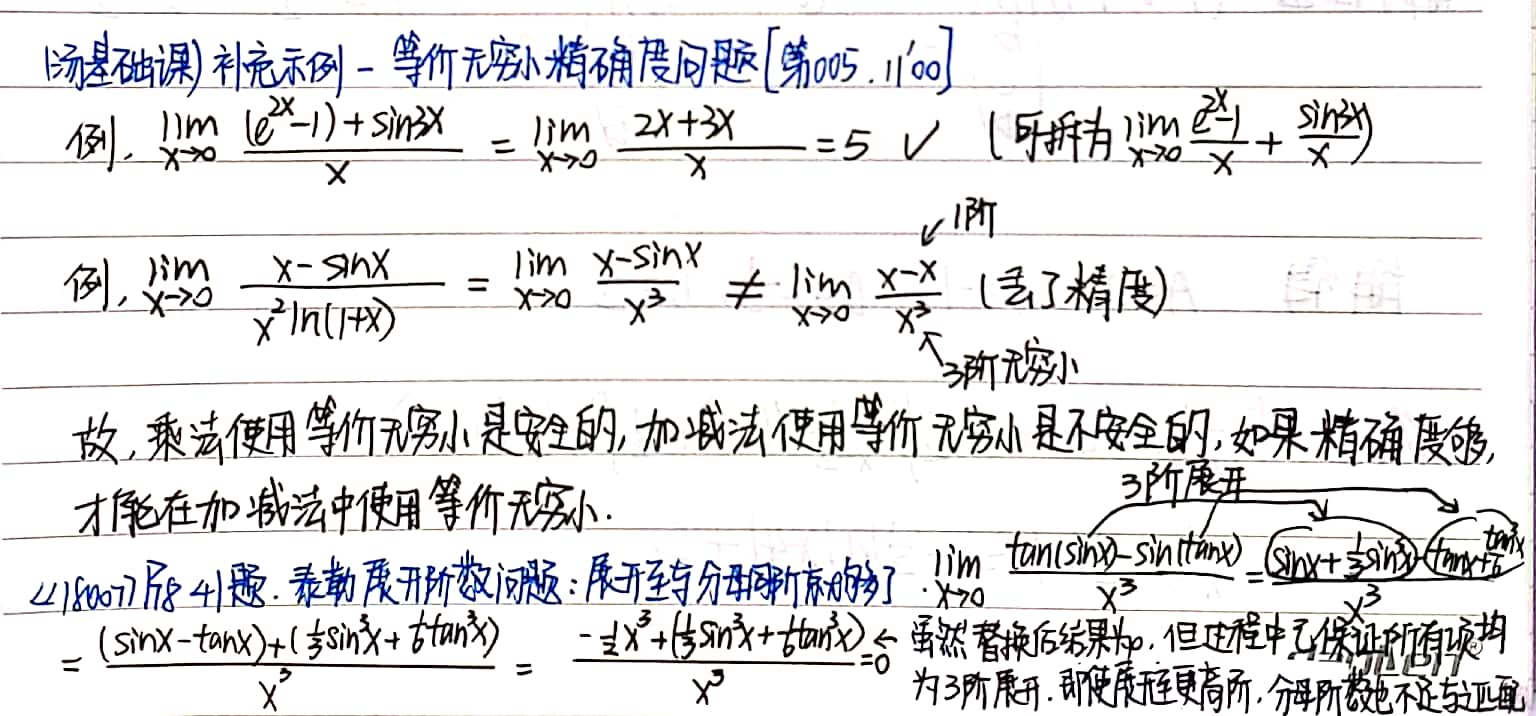 (汤基础课) 补充示例 - 等价无穷小精确度问题 [第005. 11'00]
例. lim x→0 ((e^2x - 1) + sin3x)/x = lim x→0 (2x+3x)/x = 5 ✓ (可拆为 lim x→0 (e^2x - 1)/x + sin3x/x)
↙ 1阶
例. lim x→0 (x - sinx)/(x² ln(1+x)) = lim x→0 (x - sinx)/x³ ≠ lim x→0 (x - x)/x³ (丢了精度)
↖ 3阶无穷小
故, 乘法使用等价无穷小是安全的, 加减法使用等价无穷小是不安全的, 如果精确度够,
才能在加减法中使用等价无穷小.
3阶展开
<<1800>> P8 41题. 泰勒展开阶数问题: 展开至与分母同阶就够了. lim x→0 (tan(sinx) - sin(tanx))/x³ = ((sinx + 1/3 sin³x) - (tanx + tan³x/6))/x³
= ((sinx - tanx) + (1/3 sin³x + 1/6 tan³x))/x³ = (-1/2 x³ + (1/3 sin³x + 1/6 tan³x))/x³ = 0 ← 虽然替换后结果为0. 但过程中已保证所有项均
为3阶展开. 即使展开至更高阶, 分母阶数也不足与之匹配